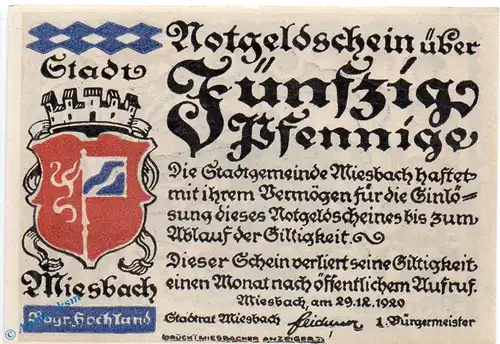 Stadt
Miesbach
Bayr. Hochland
Notgeldschein über
Fünfzig
Pfennige
Die Stadtgemeinde Miesbach haftet
mit ihrem Vermögen für die Einlö=
sung dieses Notgeldscheines bis zum
Ablauf der Giltigkeit.
Dieser Schein verliert seine Giltigkeit
einen Monat nach öffentlichem Aufruf.
Miesbach, am 29.12.1920
Stadtrat Miesbach 1. Bürgermeister
DRUCK: MIESBACHER ANZEIGER